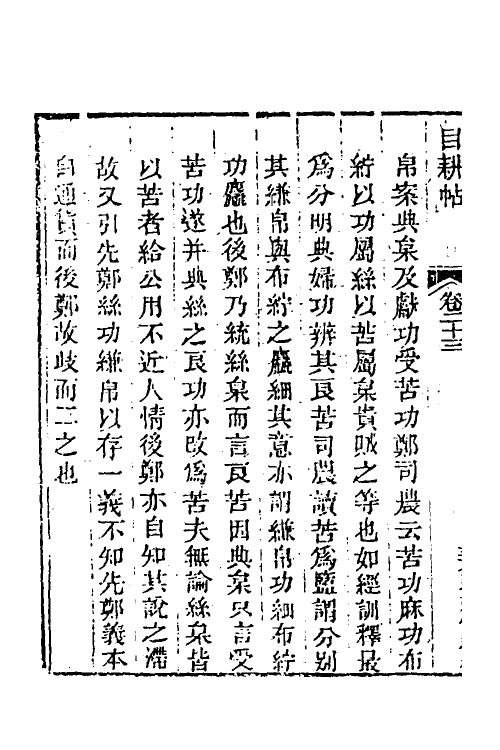 目耕帖
卷二十三
帛案典枲及獻功受苦功鄭司農云苦功麻功布
紵以功屬絲以苦屬枲貴賊之等也如經訓釋最
爲分明典婦功辨其良苦司農讀苦爲盬謂分别
其縑帛與布紵之麤細其意亦謂縑帛功細布紵
功麤也後鄭乃統絲枲而言良苦因典枲只言受
苦功遂并典絲之良功亦改爲苦夫無論絲枲皆
以苦者給公用不近人情後鄭亦自知其説之滯
故又引先鄭絲功縑帛以存一義不知先鄭義本
自通貫而後鄭故歧而二之也